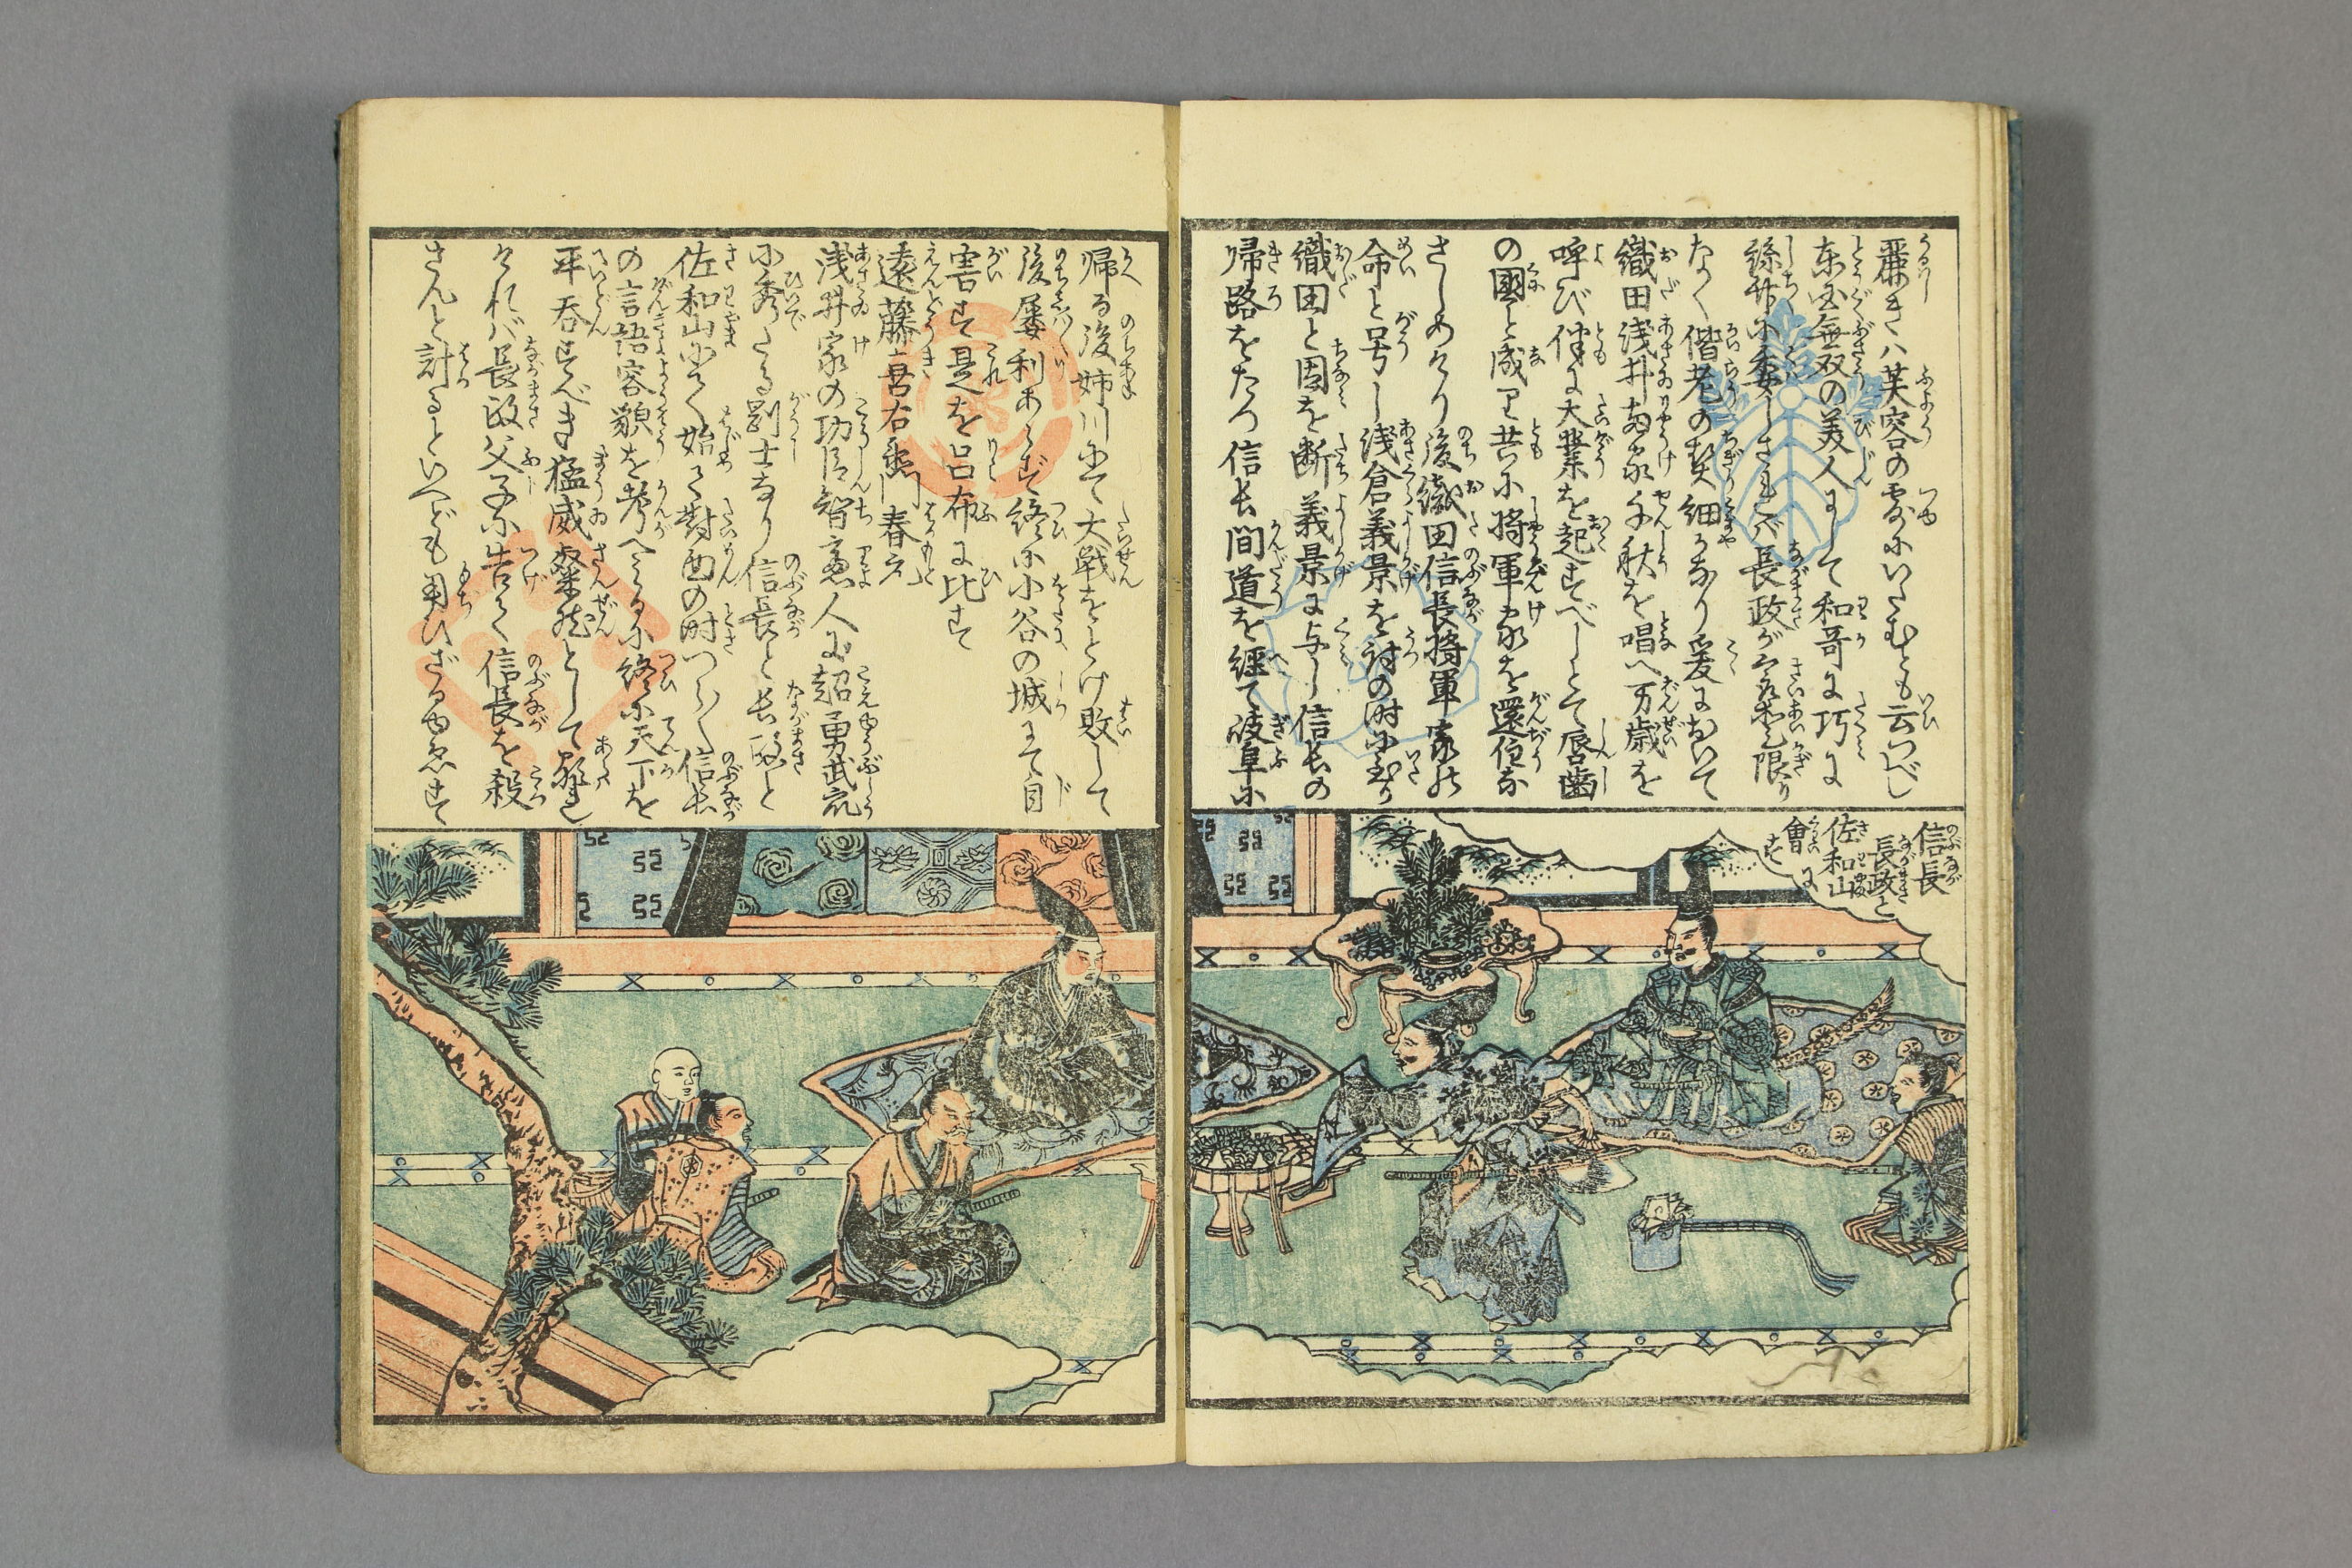 麗きハ芙容の露にいたむとも云つべし
東国無双の美人にして和哥に巧に
絲竹に委しされバ長政が寵愛限り
なく偕老の契細かなり爰において
織田浅井両家千秋を唱へ万歳を
呼び伴に大業を起すべしとて唇歯
の國と成り共に将軍家を還住な
さしめけり後織田信長将軍家の
命と号し浅倉義景を討の時に至り
織田と因を断義景に与し信長の
帰路をたつ信長間道を経て岐阜に
信長
長政と
佐和山に
會す
帰る後姉川にて大戦をとげ敗して
後屡利あらず終に小谷の城にて自
害す是を呂布に比す
遠藤喜右衛門春元
浅井家の功臣智慮人に超勇武衆
に秀たる剛士なり信長と長政と
佐和山にて始て對面の時つら〱信長
の言語容貌を考へみるに終に天下を
平呑すべき猛威粲然として顕る
けれバ長政父子に告て信長を殺
さんと計るといへども用ひざるゆゑす